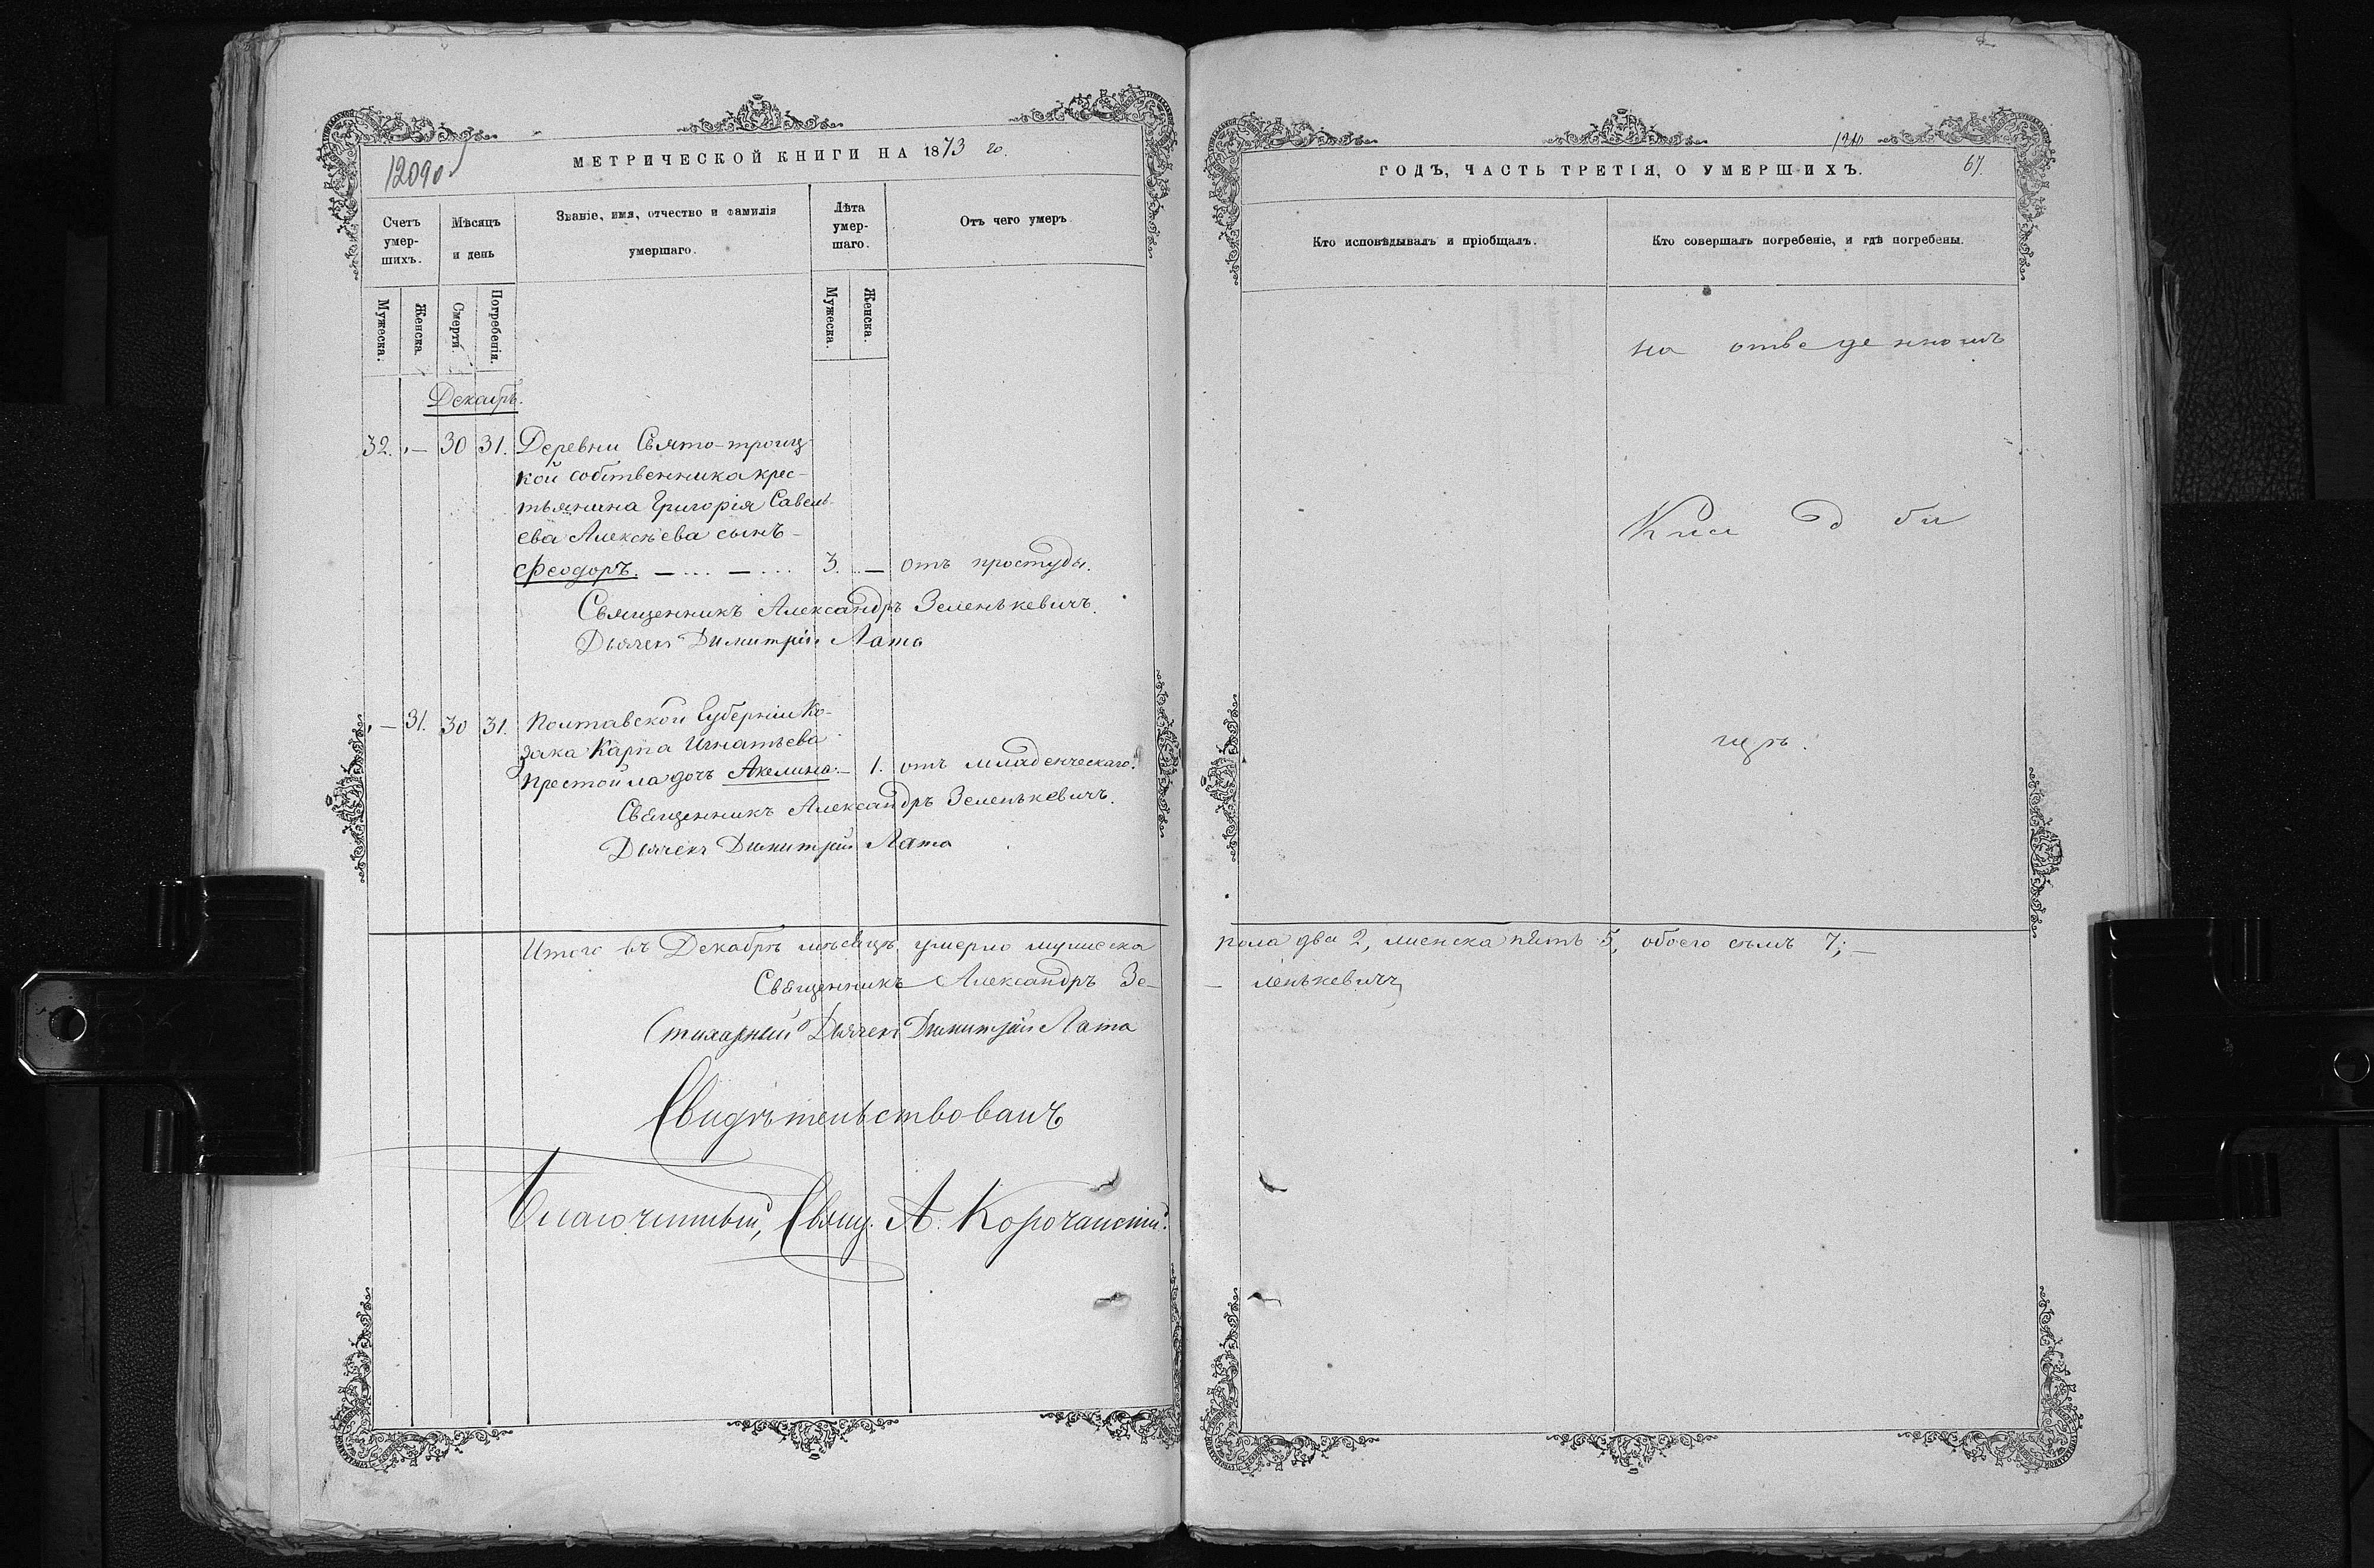 МЕТРИЧЕСКОЙ КНИГИ НА 1873 го.
Счетъ умер-шихъ.
Мѣсяцъ и день
Званіе, имя, отчество и фамилія умершаго.
Лѣта умер-шаго.
Отъ чего умеръ.
Мужеска.
Женска.
Смерти.
Погребенія.
Мужеска.
Женска.
Декабрь.
32. — 30 31. Деревни Свято-троиц-
кой собственника крес-
тьянина Григорія Савель-
ева Алексѣева сынъ
Ѳеодоръ. 3. — отъ простуды.
Священникъ Александръ Зеленькевичъ.
Дьячекъ Димитрій Лата
— 31. 30 31. Полтавской Губерніи Ко-
зака Карпа Игнатьева
Престойла дочь Акелина — 1. отъ младенческаго.
Священникъ Александръ Зеленькевичъ.
Дьячекъ Димитрій Лата
Итого въ Декабрѣ мѣсяцѣ умерло мужеска
Священникъ Александръ Зе-
Стихарный Дьячекъ Димитрій Лата
Свидѣтельствовалъ
Благочинный, Свящ. А. Корочанскій.
ГОДЪ, ЧАСТЬ ТРЕТІЯ, О УМЕРШИХЪ.
67.
Кто исповѣдывалъ и пріобщалъ.
Кто совершалъ погребеніе, и гдѣ погребены.
на отведенномъ
Клад би
щѣ.
пола два 2, женска пять 5, обоего семь 7; —
— ленькевичъ